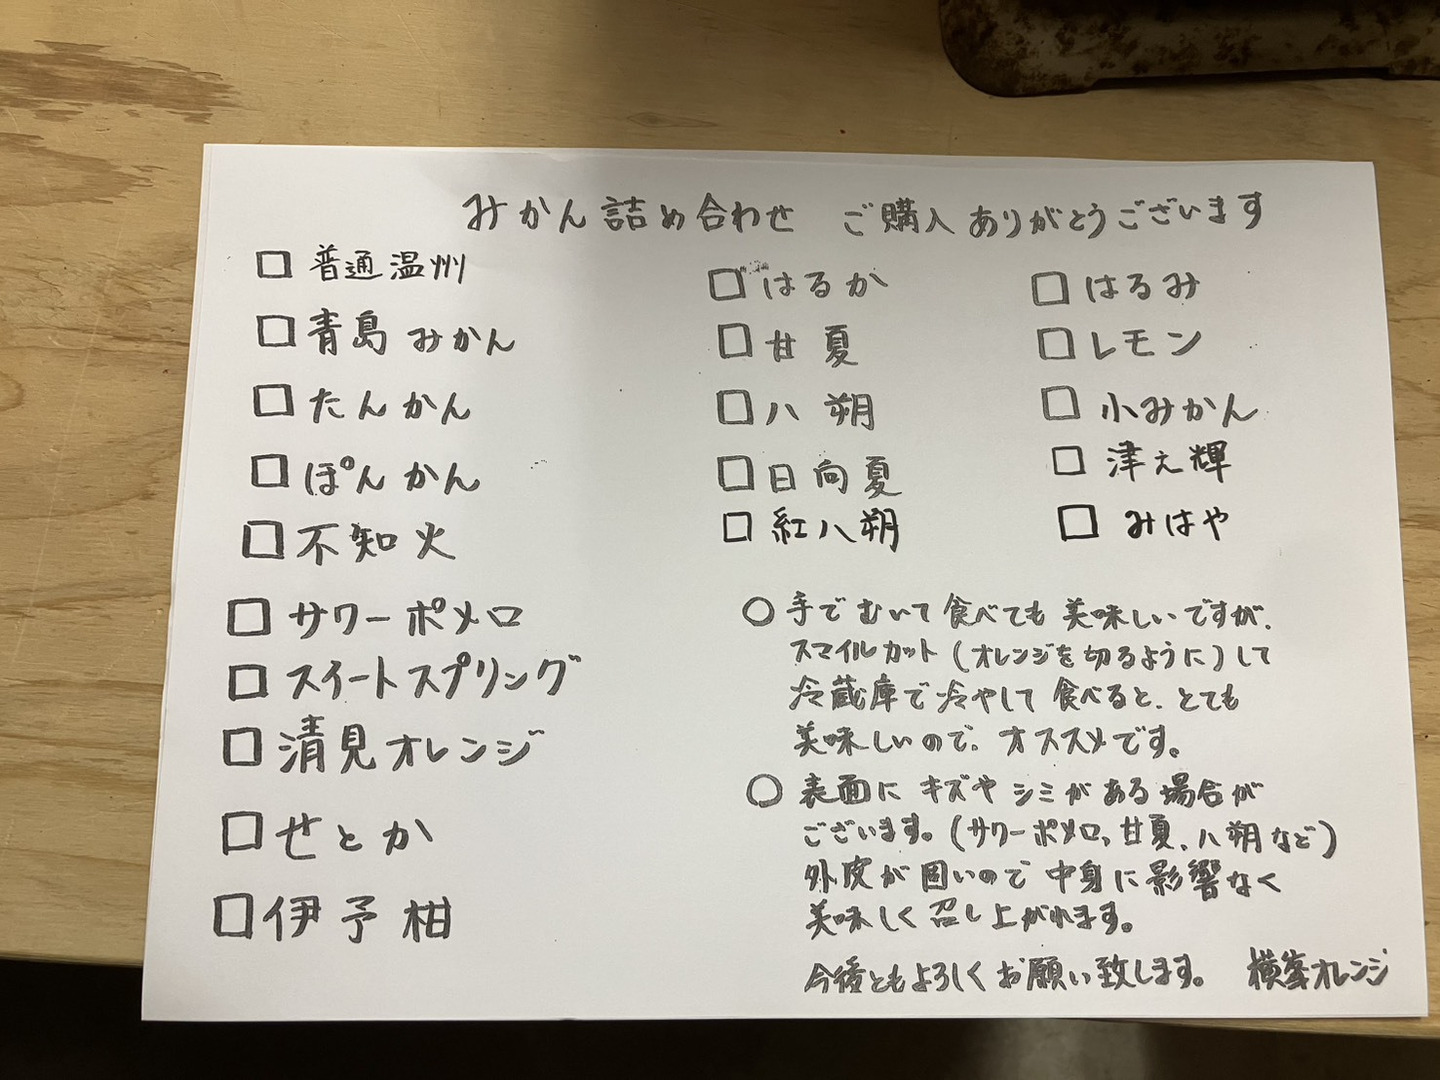 みかん詰め合わせ ご購入ありがとうございます
□ 普通温州
□ 青島みかん
□ たんかん
□ ぽんかん
□ 不知火
□ サワーポメロ
□ スイートスプリング
□ 清見オレンジ
□ せとか
□ 伊予柑
□ はるか
□ 甘夏
□ 八朔
□ 日向夏
□ 紅八朔
□ はるみ
□ レモン
□ 小みかん
□ 津え輝
□ みはや
○ 手でむいて食べても美味しいですが、
スマイルカット(オレンジを切るように)して
冷蔵庫で冷やして食べると、とても
美味しいので、オススメです。
○ 表面にキズやシミがある場合が
ございます。(サワーポメロ、甘夏、八朔など)
外皮が固いので中身に影響なく
美味しく召し上がれます。
今後ともよろしくお願い致します。 横峯オレンジ